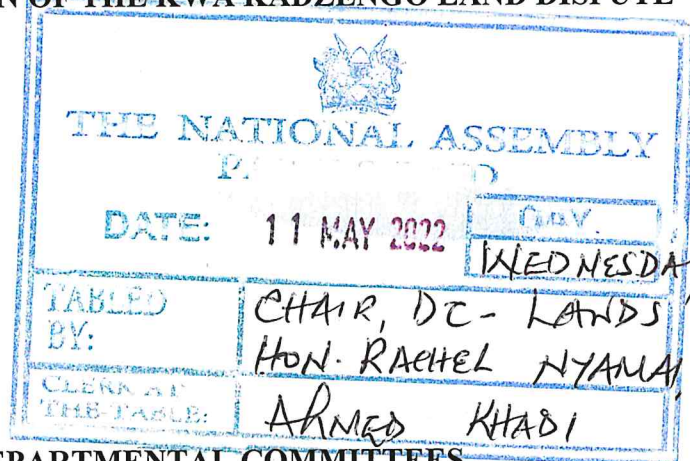 N OF THE KWA KADZENGO LAND DISPUTE
THE NATIONAL ASSEMBLY
DATE: 11 MAY 2022 DAY.
WEDNESDA
TABLED BY: CHAIR, DC - LANDS
HON. RACHEL NYAMAI
CLERK AT THE-TABLE: AHMED KHADI
DEPARTMENTAL COMMITTEES